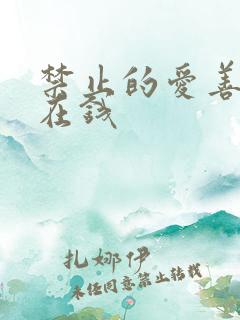 禁止的爱善
在线
扎娜伊
未经同意禁止转载